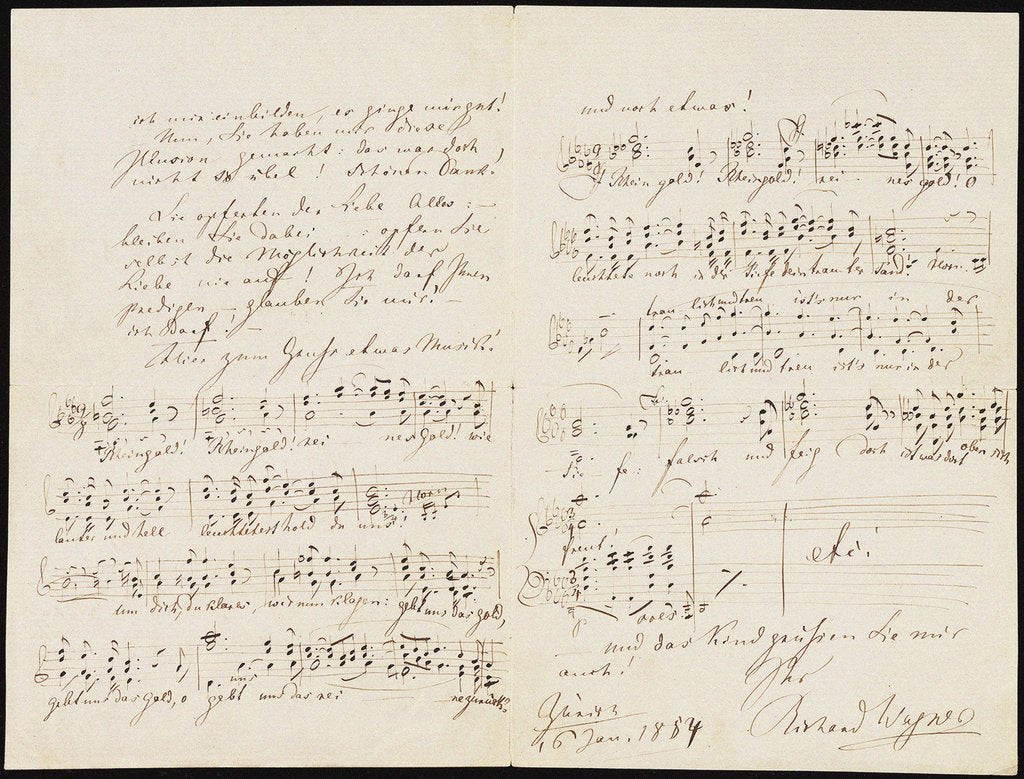 ich mir einbilden, es ginge mir gut!
Nun, Sie haben mir diese
Illusion gemacht: das war doch
nicht so übel! Schönen Dank!
Sie opferten der Liebe Alles: —
bleiben Sie dabei — : opfern Sie
selbst die Möglichkeit der
Liebe nie auf! Ich darf Ihnen
predigen — glauben Sie mir: —
ich darf! —
Hier zum Gruss etwas Musik!
Rheingold! Rheingold! rei - nes Gold! wie
lauter und hell leuchtetest hold du uns! Horn
um dich, du klares, wir nun klagen: gebt uns das Gold,
uns
gebt uns das Gold, o gebt uns das rei - ne zurück!
und noch etwas!
Rheingold! Rheingold! rei - nes Gold! O
leuchtete noch in der Tiefe dein laut'rer Tand! Horn.
trau - lich und treu ist's nur in der
trau - lich und treu ist's nur in der
Tie - fe: falsch und feig doch ist was dort oben sich
freut!
etc.
und das Kind grüssen Sie mir
auch!
Ihr
Richard Wagner
Zürich
16 Jan. 1854